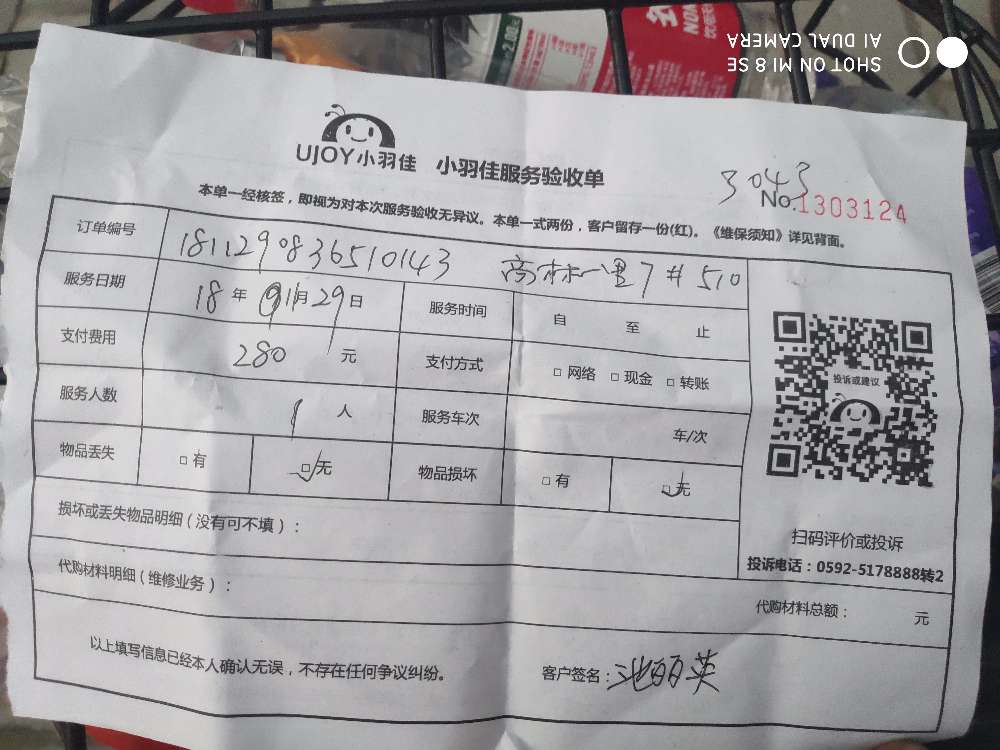 SHOT ON MI 8 SE
AI DUAL CAMERA
UJOY小羽佳 小羽佳服务验收单
3043
No.1303124
本单一经核签，即视为对本次服务验收无异议。本单一式两份，客户留存一份(红)。《维保须知》详见背面。
订单编号 1811290836510143 高林一里7#510
服务日期 18年11月29日 服务时间 自 至 止
支付费用 280 元 支付方式 □网络 □现金 □转账
服务人数 1 人 服务车次 车/次
物品丢失 □有 ☑无 物品损坏 □有 ☑无
投诉或建议
扫码评价或投诉
投诉电话：0592-5178888转2
损坏或丢失物品明细（没有可不填）：
代购材料明细（维修业务）：
代购材料总额： 元
以上填写信息已经本人确认无误，不存在任何争议纠纷。
客户签名：池丽英